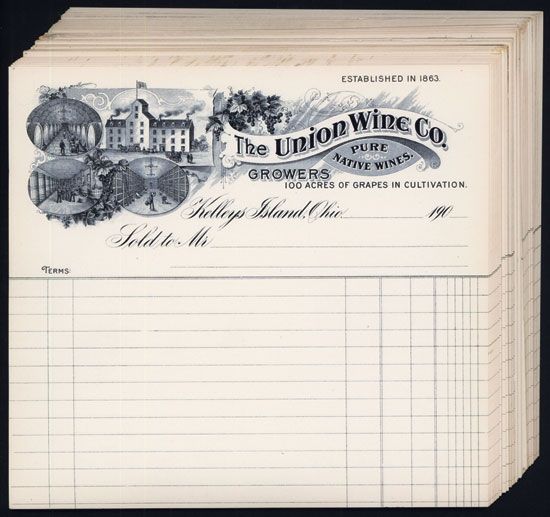 ESTABLISHED IN 1863.
The Union Wine Co.
PURE
NATIVE WINES.
GROWERS
100 ACRES OF GRAPES IN CULTIVATION.
Kelleys Island, Ohio 190
Sold to Mr
TERMS: